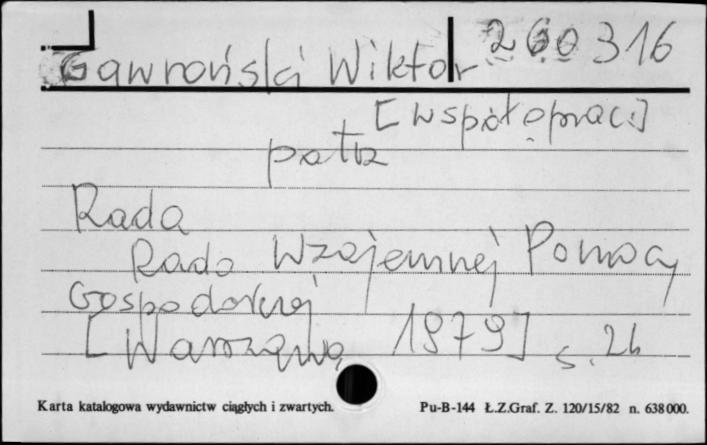 260316
Gawroński Wiktor
[współoprac.]
patrz
Rada
Rada Wzajemnej Pomocy
Gospodarczej
[Warszawa 1979] s. 26
Karta katalogowa wydawnictw ciągłych i zwartych. Pu-B-144 Ł.Z.Graf. Z. 120/15/82 n. 638000.